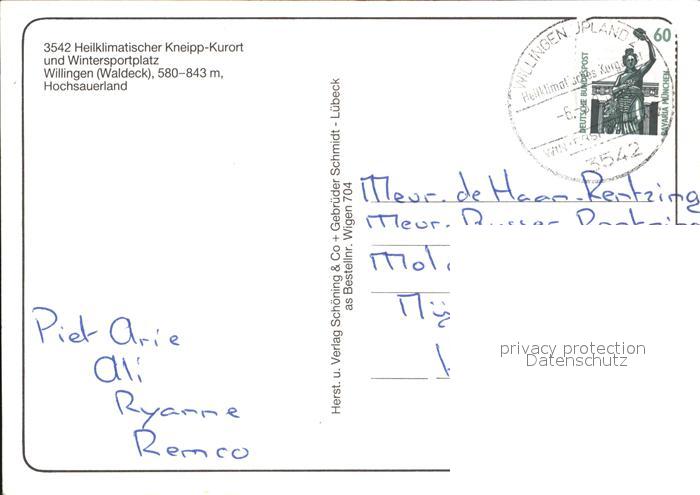 3542 Heilklimatischer Kneipp-Kurort
und Wintersportplatz
Willingen (Waldeck), 580–843 m,
Hochsauerland
WILLINGEN UPLAND
Heilklimatisches
-6.
3542
60
DEUTSCHE BUNDESPOST
BAVARIA MÜNCHEN
Herst. u. Verlag Schöning & Co + Gebrüder Schmidt - Lübeck
as Bestellnr. Wigen 704
Mevr. de Haan-Rentzing
Mevr.
privacy protection
Datenschutz
Piet Arie
Ali
Ryanne
Remco